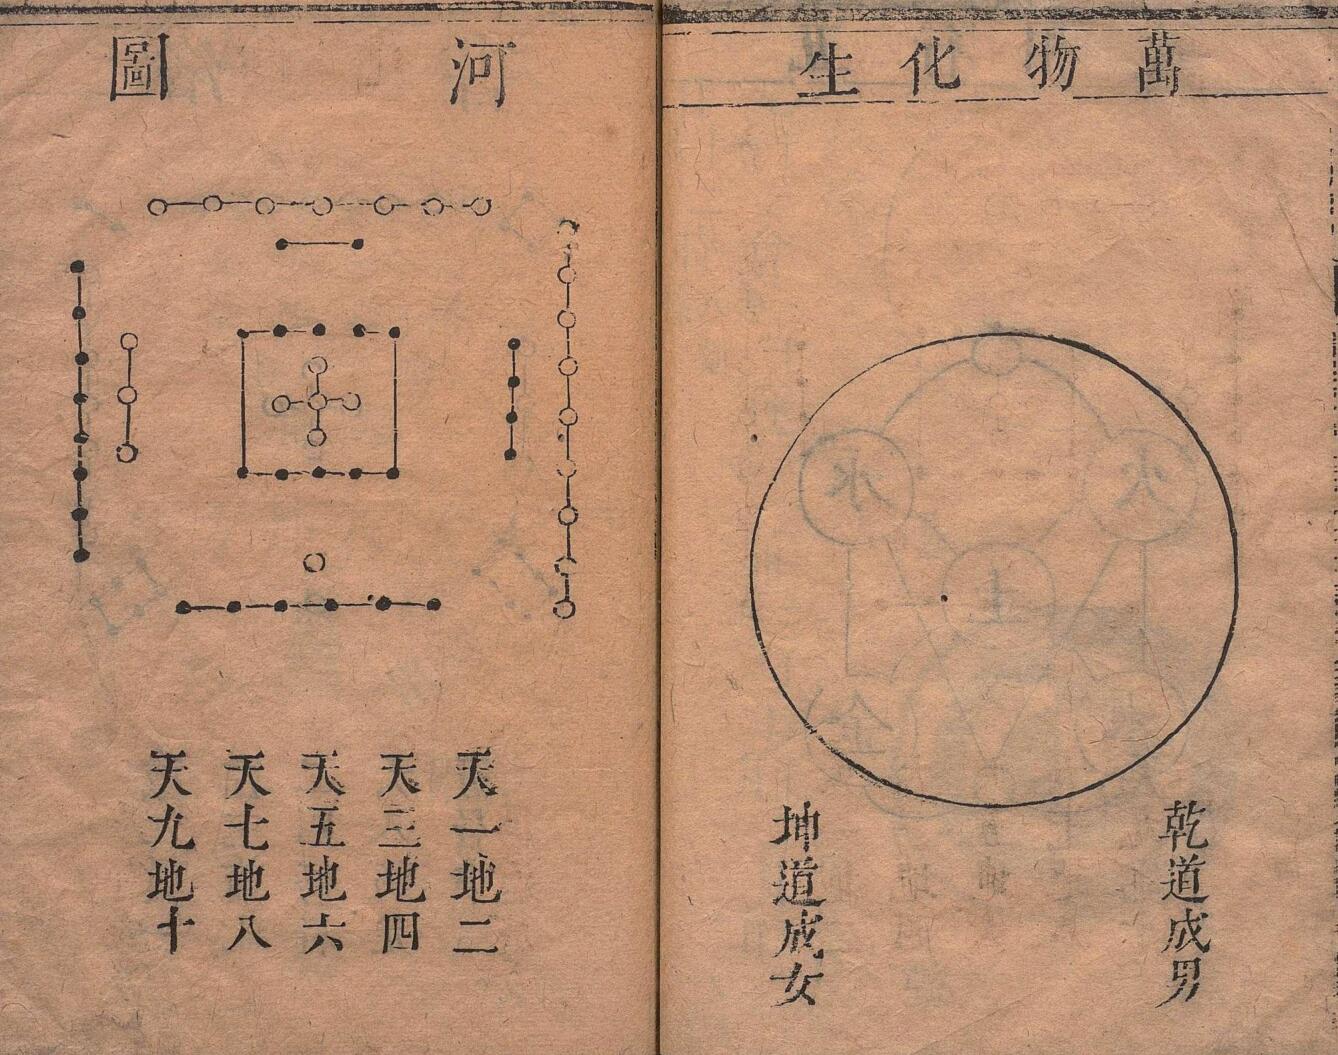 萬物化生
乾道成男
坤道成女
河圖
天一地二
天三地四
天五地六
天七地八
天九地十